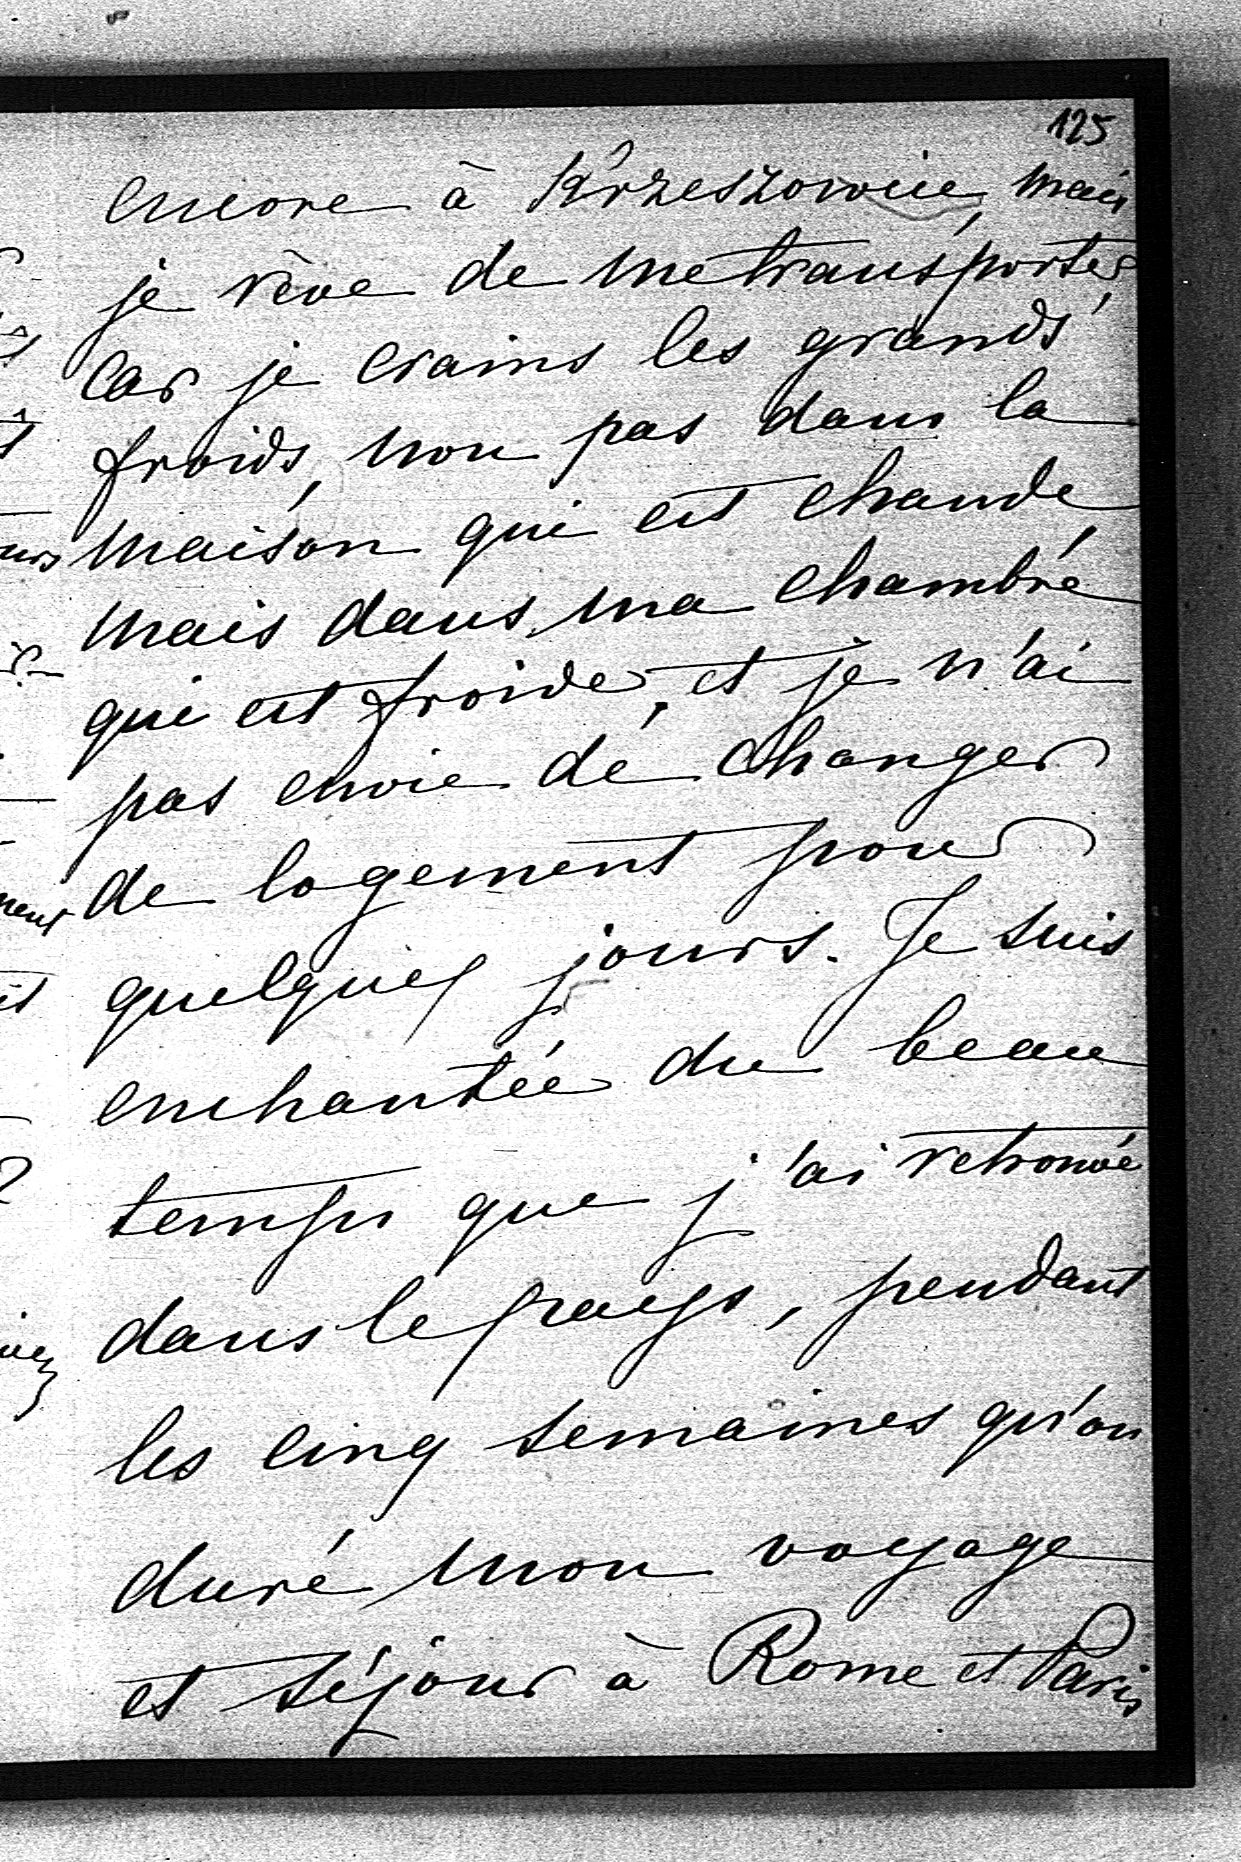 125
encore à Krzeszowice, mais
je rêve de me transporter
car je crains les grands
froids, non pas dans la
maison qui est chaude,
mais dans ma chambre
qui est froide, et je n'ai
pas envie de changer
de logement pour
quelques jours. Je suis
enchantée du beau
temps que j'ai retrouvé
dans le pays, pendant
les cinq semaines qu'on
duré mon voyage
et séjour à Rome et Paris